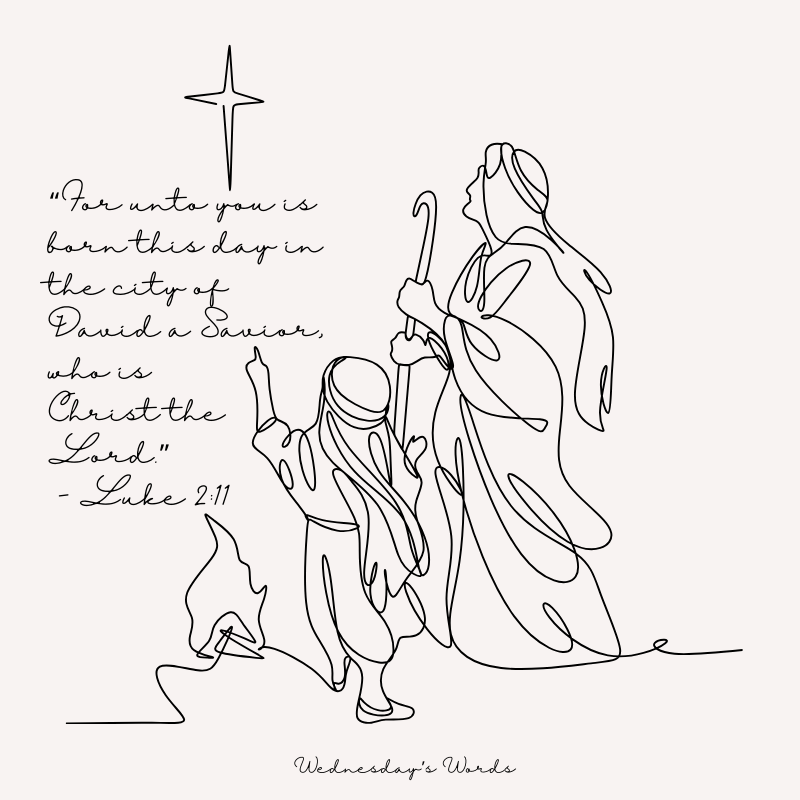 "For unto you is
born this day in
the city of
David a Savior,
who is
Christ the
Lord."
- Luke 2:11
Wednesday's Words